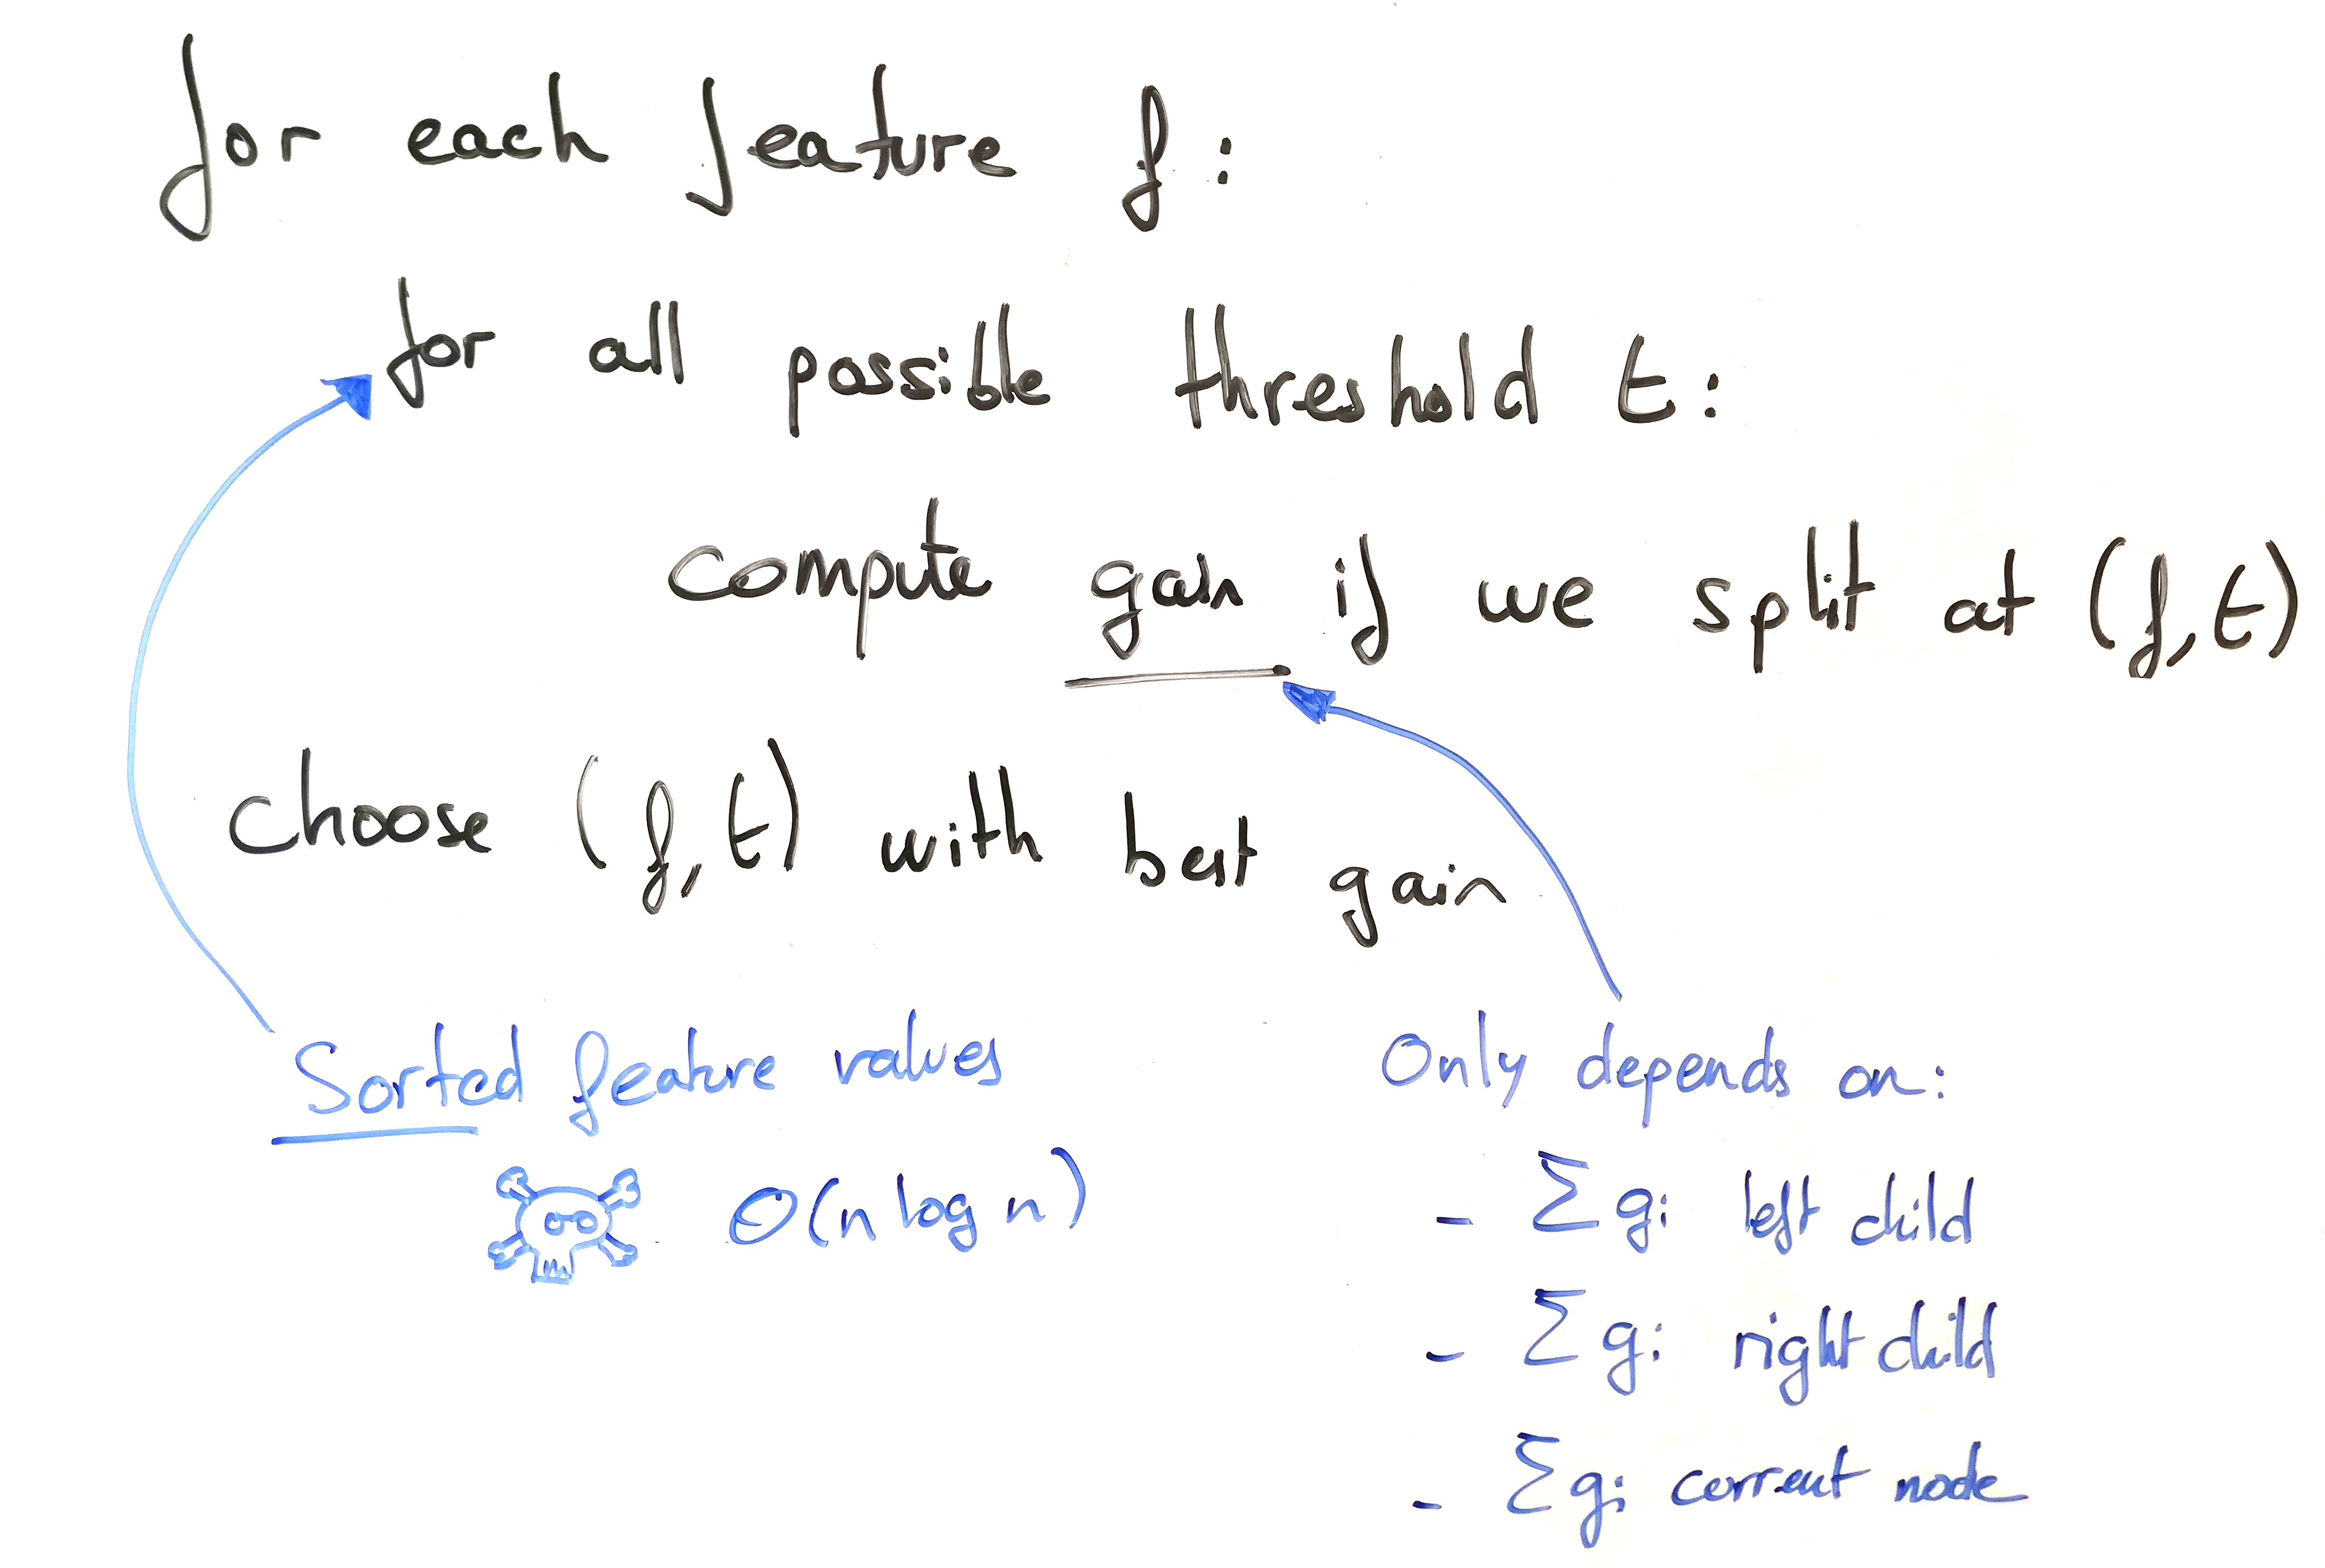 for each feature f:
for all possible threshold t:
compute gain if we split at (f, t)
choose (f, t) with best gain
Sorted feature values
O(n log n)
Only depends on:
- Σ gi left child
- Σ gi right child
- Σ gi current node